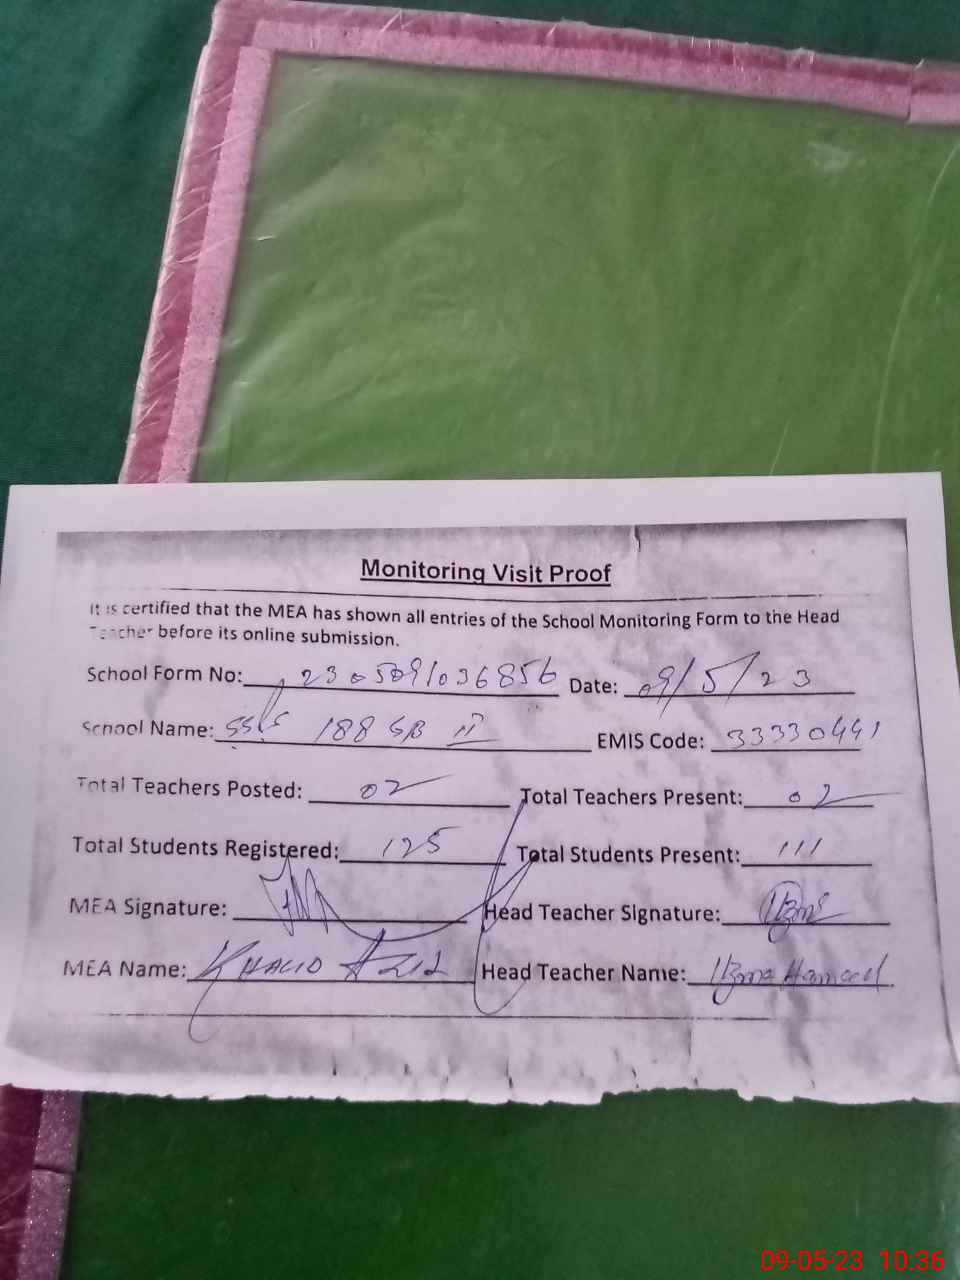 Monitoring Visit Proof
It is certified that the MEA has shown all entries of the School Monitoring Form to the Head
Teacher before its online submission.
School Form No: 2305091036856 Date: 09/5/23
School Name: 188 GB II EMIS Code: 33330441
Total Teachers Posted: 02 Total Teachers Present: 02
Total Students Registered: 125 Total Students Present: 111
MEA Signature: Head Teacher Signature:
MEA Name: KHALID AZIZ Head Teacher Name: Uzma Hameed
09-05-23 10:36